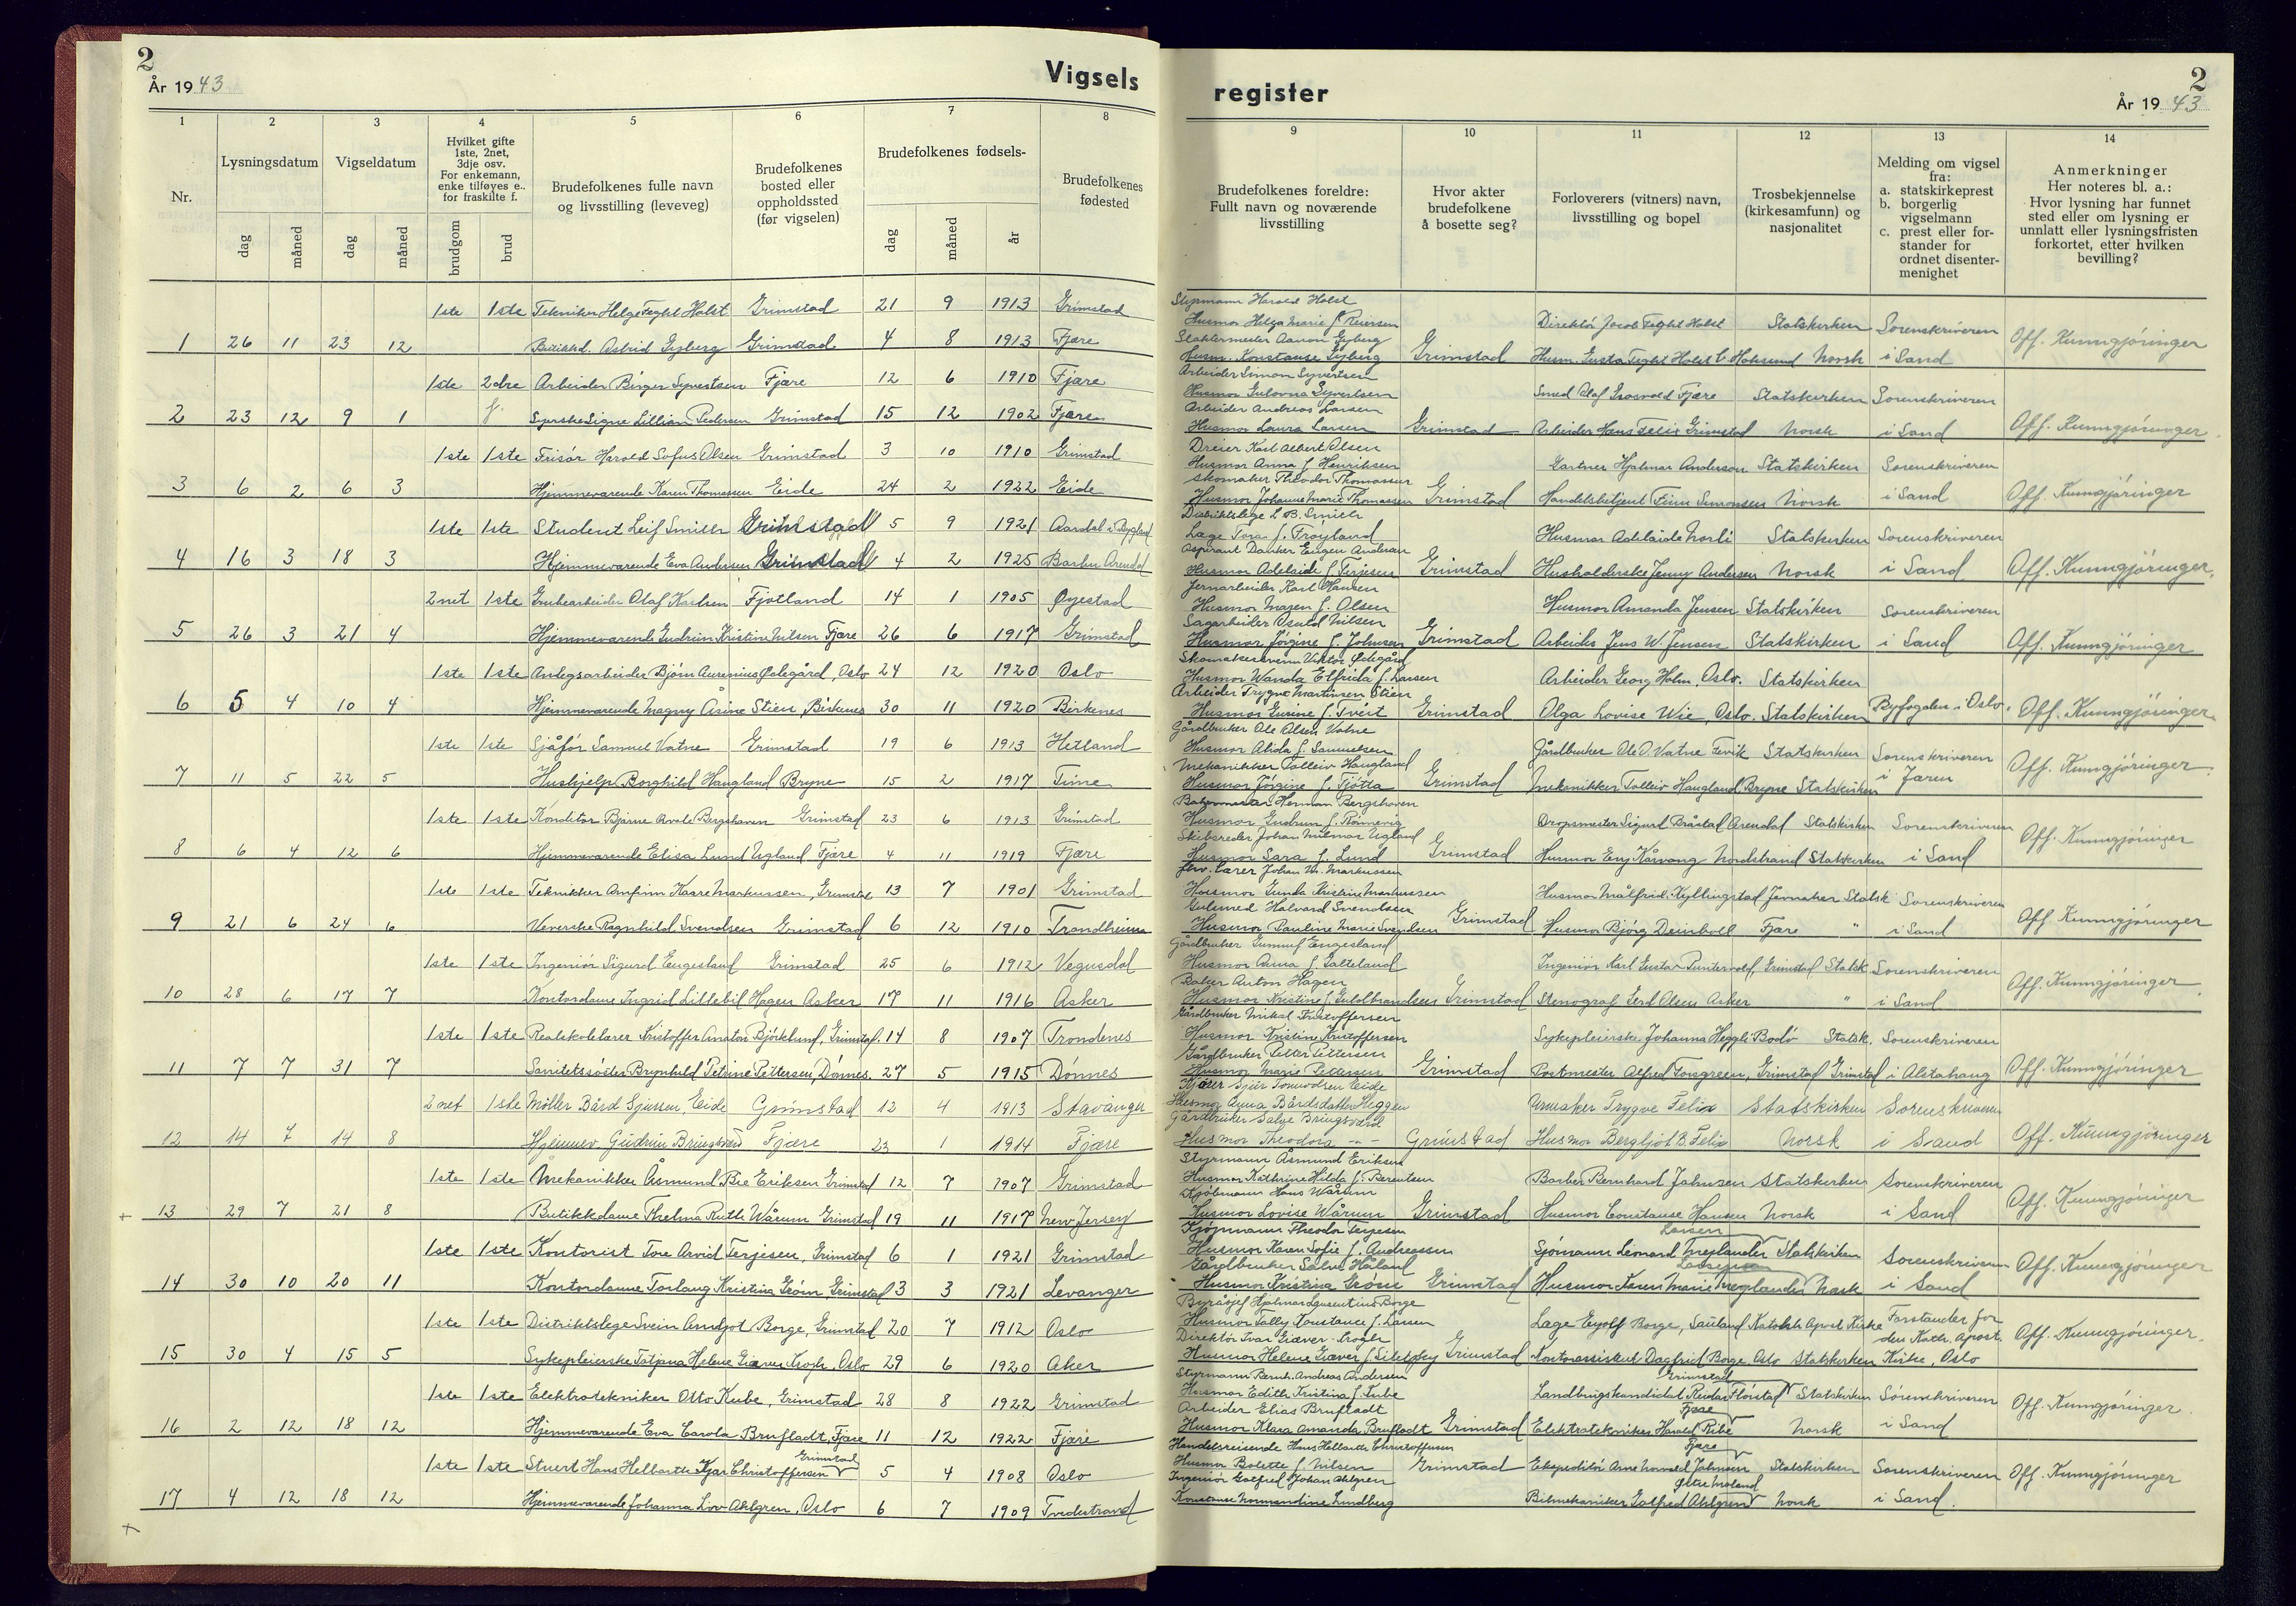 2
År 1943
Vigsels
register
2
År 1943
1
2
3
4
5
6
7
8
9
10
11
12
13
14
Nr.
Lysningsdatum
dag
måned
Vigseldatum
dag
måned
Hvilket gifte
1ste, 2net,
3dje osv.
For enkemann,
enke tilføyes e..
for fraskilte f.
brudgom
brud
Brudefolkenes fulle navn
og livsstilling (leveveg)
Brudefolkenes
bosted eller
oppholdssted
(før vigselen)
Brudefolkenes fødsels-
dag
måned
år
Brudefolkenes
fødested
Brudefolkenes foreldre:
Fullt navn og noværende
livsstilling
Hvor akter
brudefolkene
å bosette seg?
Forloverers (vitners) navn,
livsstilling og bopel
Trosbekjennelse
(kirkesamfunn) og
nasjonalitet
Melding om vigsel
fra:
a. statskirkeprest
b. borgerlig
vigselmann
c. prest eller for-
stander for
ordnet disenter-
menighet
Anmerkninger
Her noteres bl. a.:
Hvor lysning har funnet
sted eller om lysning er
unnlatt eller lysningsfristen
forkortet, etter hvilken
bevilling?
1ste 1ste Tekniker Helge Feght Holst Grimstad 21 9 1913 Grimstad
1 26 11 23 12 Butikkd. Astrid Gyberg Grimstad 4 8 1913 Fjære
1ste 2dre Arbeider Birger Syvertsen Fjære 12 6 1910 Fjære
2 23 12 9 1 f. Syerske Signe Lillian Pedersen Grimstad 15 12 1902 Fjære
1ste 1ste Frisør Harald Sofus Olsen Grimstad 3 10 1910 Grimstad
3 6 2 6 3 Hjemmeværende Karen Thomassen Eide 24 2 1922 Eide
1ste 1ste Student Leif Smith Grimstad 5 9 1921 Aardal i Bygland
4 16 3 18 3 Hjemmeværende Eva Andersen Grimstad 4 2 1925 Barbu Arendal
2net 1ste Grubearbeider Olaf Karlsen Fjotland 14 1 1905 Øyestad
5 26 3 21 4 Hjemmeværende Gudrun Kristine Nilsen Fjære 26 6 1917 Grimstad
1ste 1ste Anlegsarbeider Bjørn Aurenius Ødegård, Oslo 24 12 1920 Oslo
6 5 4 10 4 Hjemmeværende Magny Åsine Stien, Birkenes 30 11 1920 Birkenes
1ste 1ste Sjåfør Samuel Vatne Grimstad 19 6 1913 Hetland
7 11 5 22 5 Hushjelp Borghild Haugland Bryne 15 2 1917 Time
1ste 1ste Konditor Bjarne Arvole Bergshaven Grimstad 23 6 1913 Grimstad
8 6 4 12 6 Hjemmeværende Elisa Lund Ugland Fjære 4 11 1919 Fjære
1ste 1ste Teknikker Arnfinn Kaare Markussen, Grimstad 13 7 1901 Grimstad
9 21 6 24 6 Veverske Ragnhild Svendsen Grimstad 6 12 1910 Trondheim
1ste 1ste Ingeniør Sigurd Engesland Grimstad 25 6 1912 Vegusdal
10 28 6 17 7 Kontordame Ingrid Lillebil Hagen Asker 17 11 1916 Asker
1ste 1ste Realskolelærer Kristoffer Anaton Bjørklund, Grimstad. 14 8 1907 Trondenes
11 7 7 31 7 Sanitetssøster Brynhild Petrine Pettersen, Dønnes. 27 5 1915 Dønnes
2net 1ste Møller Bård Sjursen Eide Grimstad 12 4 1913 Stavanger
12 14 7 14 8 Hjemmev. Gudrun Bringsværd Fjære 23 1 1914 Fjære
1ste 1ste Mekanikker Åsmund Bie Eriksen Grimstad 12 7 1907 Grimstad
13 29 7 21 8 Butikkdame Thelma Ruth Wårum Grimstad 19 11 1917 New Jersey
1ste 1ste Kontorist Tore Arvid Terjesen, Grimstad 6 1 1921 Grimstad
14 30 10 20 11 Kontordame Torlaug Kristina Grøm, Grimstad 3 3 1921 Levanger
1ste 1ste Distriktslege Svein Arndgot Borge, Grimstad 20 7 1912 Oslo
15 30 4 15 5 Sykepleierske Tatjana Helene Giæver Krogh, Oslo 29 6 1920 Aker
1ste 1ste Elektratekniker Otto Kube, Grimstad 28 8 1922 Grimstad
16 2 12 18 12 Hjemmeværende Eva Carola Brufladt, Fjære 11 12 1922 Fjære
1ste 1ste Stuert Hans Helbarth Kjær Christoffersen Grimstad 5 4 1908 Oslo
17 4 12 18 12 Hjemmeværende Johanna Lov Ahlgren, Oslo 6 7 1909 Tvedestrand
Styrmann Harald Holst
Husmor Helga Marie f. Reiersen Direktør Jacob Feght Holst Statskirken Sorenskriveren
Slaktermester Aanon Gyberg
Husm. Konstanse Gyberg Grimstad Husm. Gusta Feght Holst Hoksund Norsk i Sand Off. Kunngjøringer
Arbeider Simon Syvertsen
Husmor Gulovna Syvertsen Smed Olaf Grosvold Fjære Statskirken Sorenskriveren
Arbeider Andreas Larsen
Husmor Laura Larsen Grimstad Arbeider Hans Felix Grimstad Norsk i Sand Off. Kunngjøringer
Dreier Karl Albert Olsen
Husmor Anna f. Henriksen Gartner Hjalmar Anderson Statskirken Sorenskriveren
Skomaker Theodor Thomassen
Husmor Johanne Marie Thomassen Grimstad Handelsbetjent Finn Simonsen Norsk i Sand Off. Kunngjøringer
Distriktslege L. B. Smith
Lage Tora f. Frøyland Husmor Adelaide Norli Statskirken Sorenskriveren
Aspirant Danker Eugen Andersen
Husmor Adelaide f. Terjesen Grimstad Husholderske Jenny Andersen Norsk i Sand Off. Kunngjøringer.
Jernarbeider Karl Hansen
Husmor Magen f. Olsen Husmor Amanda Jensen Statskirken Sorenskriveren
Sagarbeider Osuld Nilsen
Husmor Jørgine f. Johnsen Grimstad Arbeider Jens W. Jensen Statskirken i Sand Off. Kunngjøringer
Skomakersvenn Viktor Ødegård
Husmor Wanda Elfrida f. Larsen Arbeider Georg Holm, Oslo. Statskirken
Arbeider Trygve Martinsen Stien
Husmor Gurine f. Tveit Grimstad Olga Lovise Wie, Oslo. Statskirken Byfogden i Oslo. Off. Kunngjøringer.
Gårdbruker Ole Olsen Vatne
Husmor Alida f. Samuelsen Gårdbruker Ole O. Vatne Fevik Statskirken Sorenskriveren
Mekanikker Tolleiv Haugland
Husmor Jørgine f. Fjøtta Grimstad Mekanikker Tolleiv Haugland, Bryne Statskirken i Jæren Off. Kunngjøringer.
Bakermester Herman Bergshaven
Husmor Gudrun f. Rønnevig Dropsmester Sigurd Bråstad Arendal Statskirken Sorenskriveren
Skibsreder Johan Milmar Ugland
Husmor Sara f. Lund Grimstad Husmor Eny Kårvang Nordstrand Statskirken i Sand Off. Kunngjøringer
fhv. Lærer Johan M. Markussen
Husmor Gunda Kristine Markussen Husmor Målfrid Kyllingstad Jevnaker Statsk Sorenskriveren
Gulsmed Halvard Svendsen
Husmor Pauline Marie Svendsen Grimstad Husmor Bjørg Deinboll Fjære " i Sand Off. Kunngjøringer
Gårdbruker Gunnuf Engesland
Husmor Anna f. Galteland Ingeniør Karl Gustav Puntervold, Grimstad Statsk Sorenskriveren
Baker Anton Hagen
Husmor Kristine f. Guldbrandsen Grimstad Stenograf Gerd Olsen Asker " i Sand Off. Kunngjøringer
Gårdbruker Mikal Kristoffersen
Husmor Kristine Kristoffersen Sykepleierske Johanna Heggli Bodø Statsk. Sorenskriveren
Gårdbruker Petter Pettersen
Husmor Marie Pettersen Grimstad Postmester Alfred Forsgreen, Grimstad Grimstad i Alstahaug Off. Kunngjøringer
Kjører Sjur Tonevodsen Eide
Husmor Anna Bårdsdatter Heggen Urmaker Trygve Felix Statskirken Sorenskriveren
Gårdbruker Salve Bringsværd
Husmor Theodora -"- Grimstad Husmor Bergljot B. Felix Norsk i Sand Off. Kunngjøringer
Styrmann Åsmund Eriksen
Husmor Kathrine Hilda f. Berentsen Barber Bernhard Johnsen Statskirken Sorenskriveren
Kjøbmann Hans Wårum
Husmor Lovise Wårum Grimstad Husmor Constanse Hansen Norsk i Sand Off. Kunngjøringer
Kjøpmann Theodor Terjesen Larsen
Husmor Karen Sofie f. Andreassen Sjømann Leonard Møglander Statskirken Sorenskriveren
Gårdbruker Salve Håland
Husmor Kristina Grøm Grimstad Husmor Karen Marie Møglander Norsk i Sand Off. Kunngjøringer
Byråsjef Hjalmar Laurentius Borge
Husmor Tolly Konstance f. Larsen Lage Eyolf Borge, Sauland Katolsk Apost Kirke Forstander for
Direktør Ivar Giæver-Krogh den Kath. Apost.
Husmor Helene Giæver f. Sitetsky Grimstad Kontorassistent Dagfrid Borge Oslo Statskirken Kirke, Oslo Off. Kunngjøringer.
Styrmann Bernh. Andreas Andersen Grimstad
Husmor Edith Kristina f. Kube Landbrugskandidat Reidar Flørstad Statskirken Sorenskriveren
Arbeider Elias Brufladt Fjære
Husmor Klara Amanda Brufladt Grimstad Elektratekniker Harald Ribe Norsk i Sand Off. Kunngjøringer.
Handelsreisende Hans Helbarth Christoffersen Fjære
Husmor Bolette f. Nilsen Grimstad Ekspeditør Arne Norvald Johnsen Statskirken Sorenskriveren Off. Kunngjøringer
Ingeniør Gotfred Johan Ahlgren Østre Moland
Konstanse Normandine Lundberg Bilmekaniker Gotfred Ahlgren Norsk i Sand.